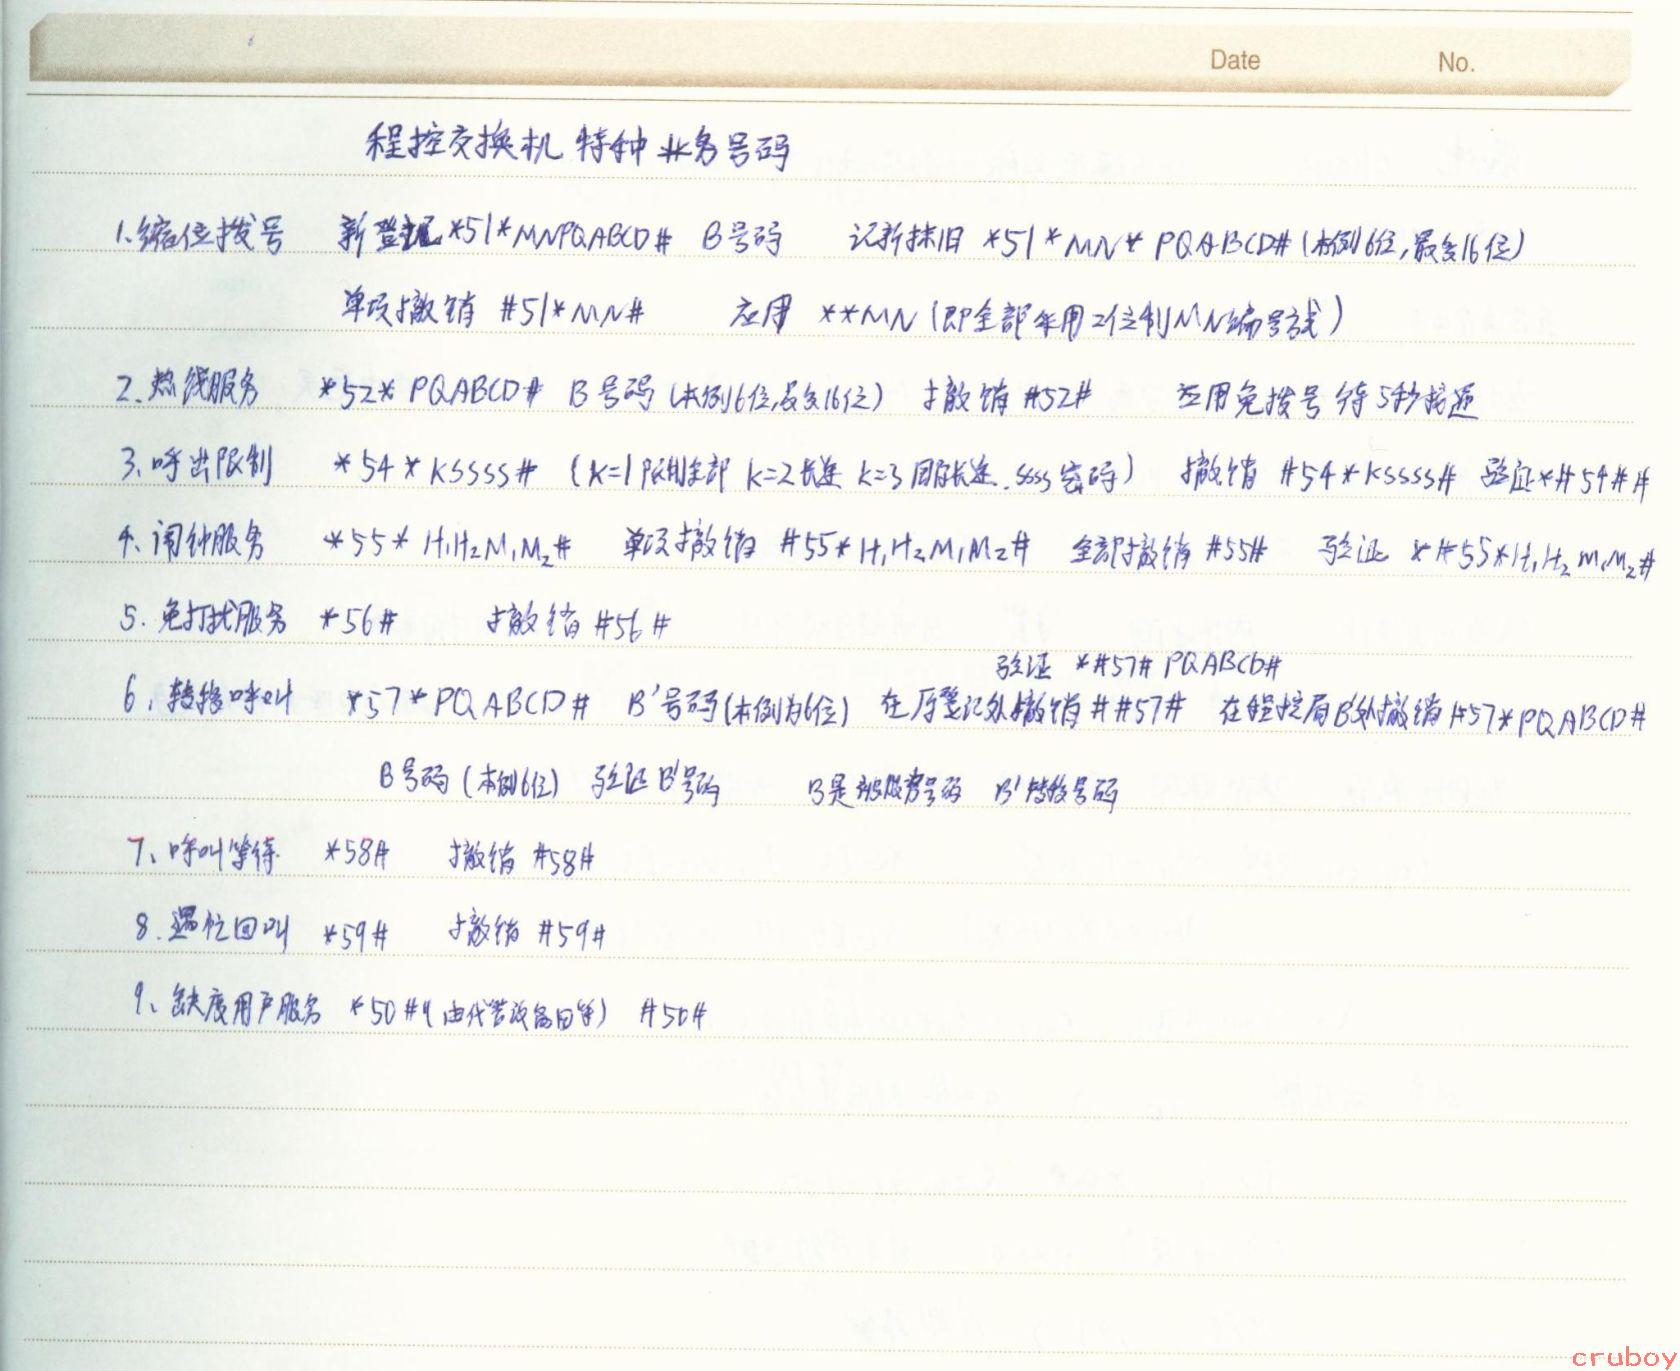 Date No.
程控交换机 特种业务号码
1.缩位拨号 新登记 *51*MNPQABCD# B号码 记新抹旧 *51*MN*PQABCD#(本例6位,最多16位)
单项撤销 #51*MN# 应用 **MN(即全部采用2位制MN编号方式)
2.热线服务 *52*PQABCD# B号码(本例6位,最多16位) 撤销#52# 应用免拨号待5秒接通
3、呼出限制 *54*KSSSS# (K=1限制全部 K=2长途 K=3国际长途.SSSS密码) 撤销 #54*KSSSS# 验证*#54##
4、闹钟服务 *55*H₁H₂M₁M₂# 单项撤销 #55*H₁H₂M₁M₂# 全部撤销#55# 验证 *#55*H₁H₂M₁M₂#
5.免打扰服务 *56# 撤销#56#
验证 *#57#PQABCD#
6、转移呼叫 *57*PQABCD# B'号码(本例为6位) 在原登记处撤销##57# 在程控局B'处撤销#57*PQABCD#
B号码(本例6位) 验证B'号码 B是被服务号码 B'转移号码
7、呼叫等待 *58# 撤销 #58#
8.遇忙回叫 *59# 撤销 #59#
9、缺席用户服务 *50#(由代答设备回答) #50#
cruboy